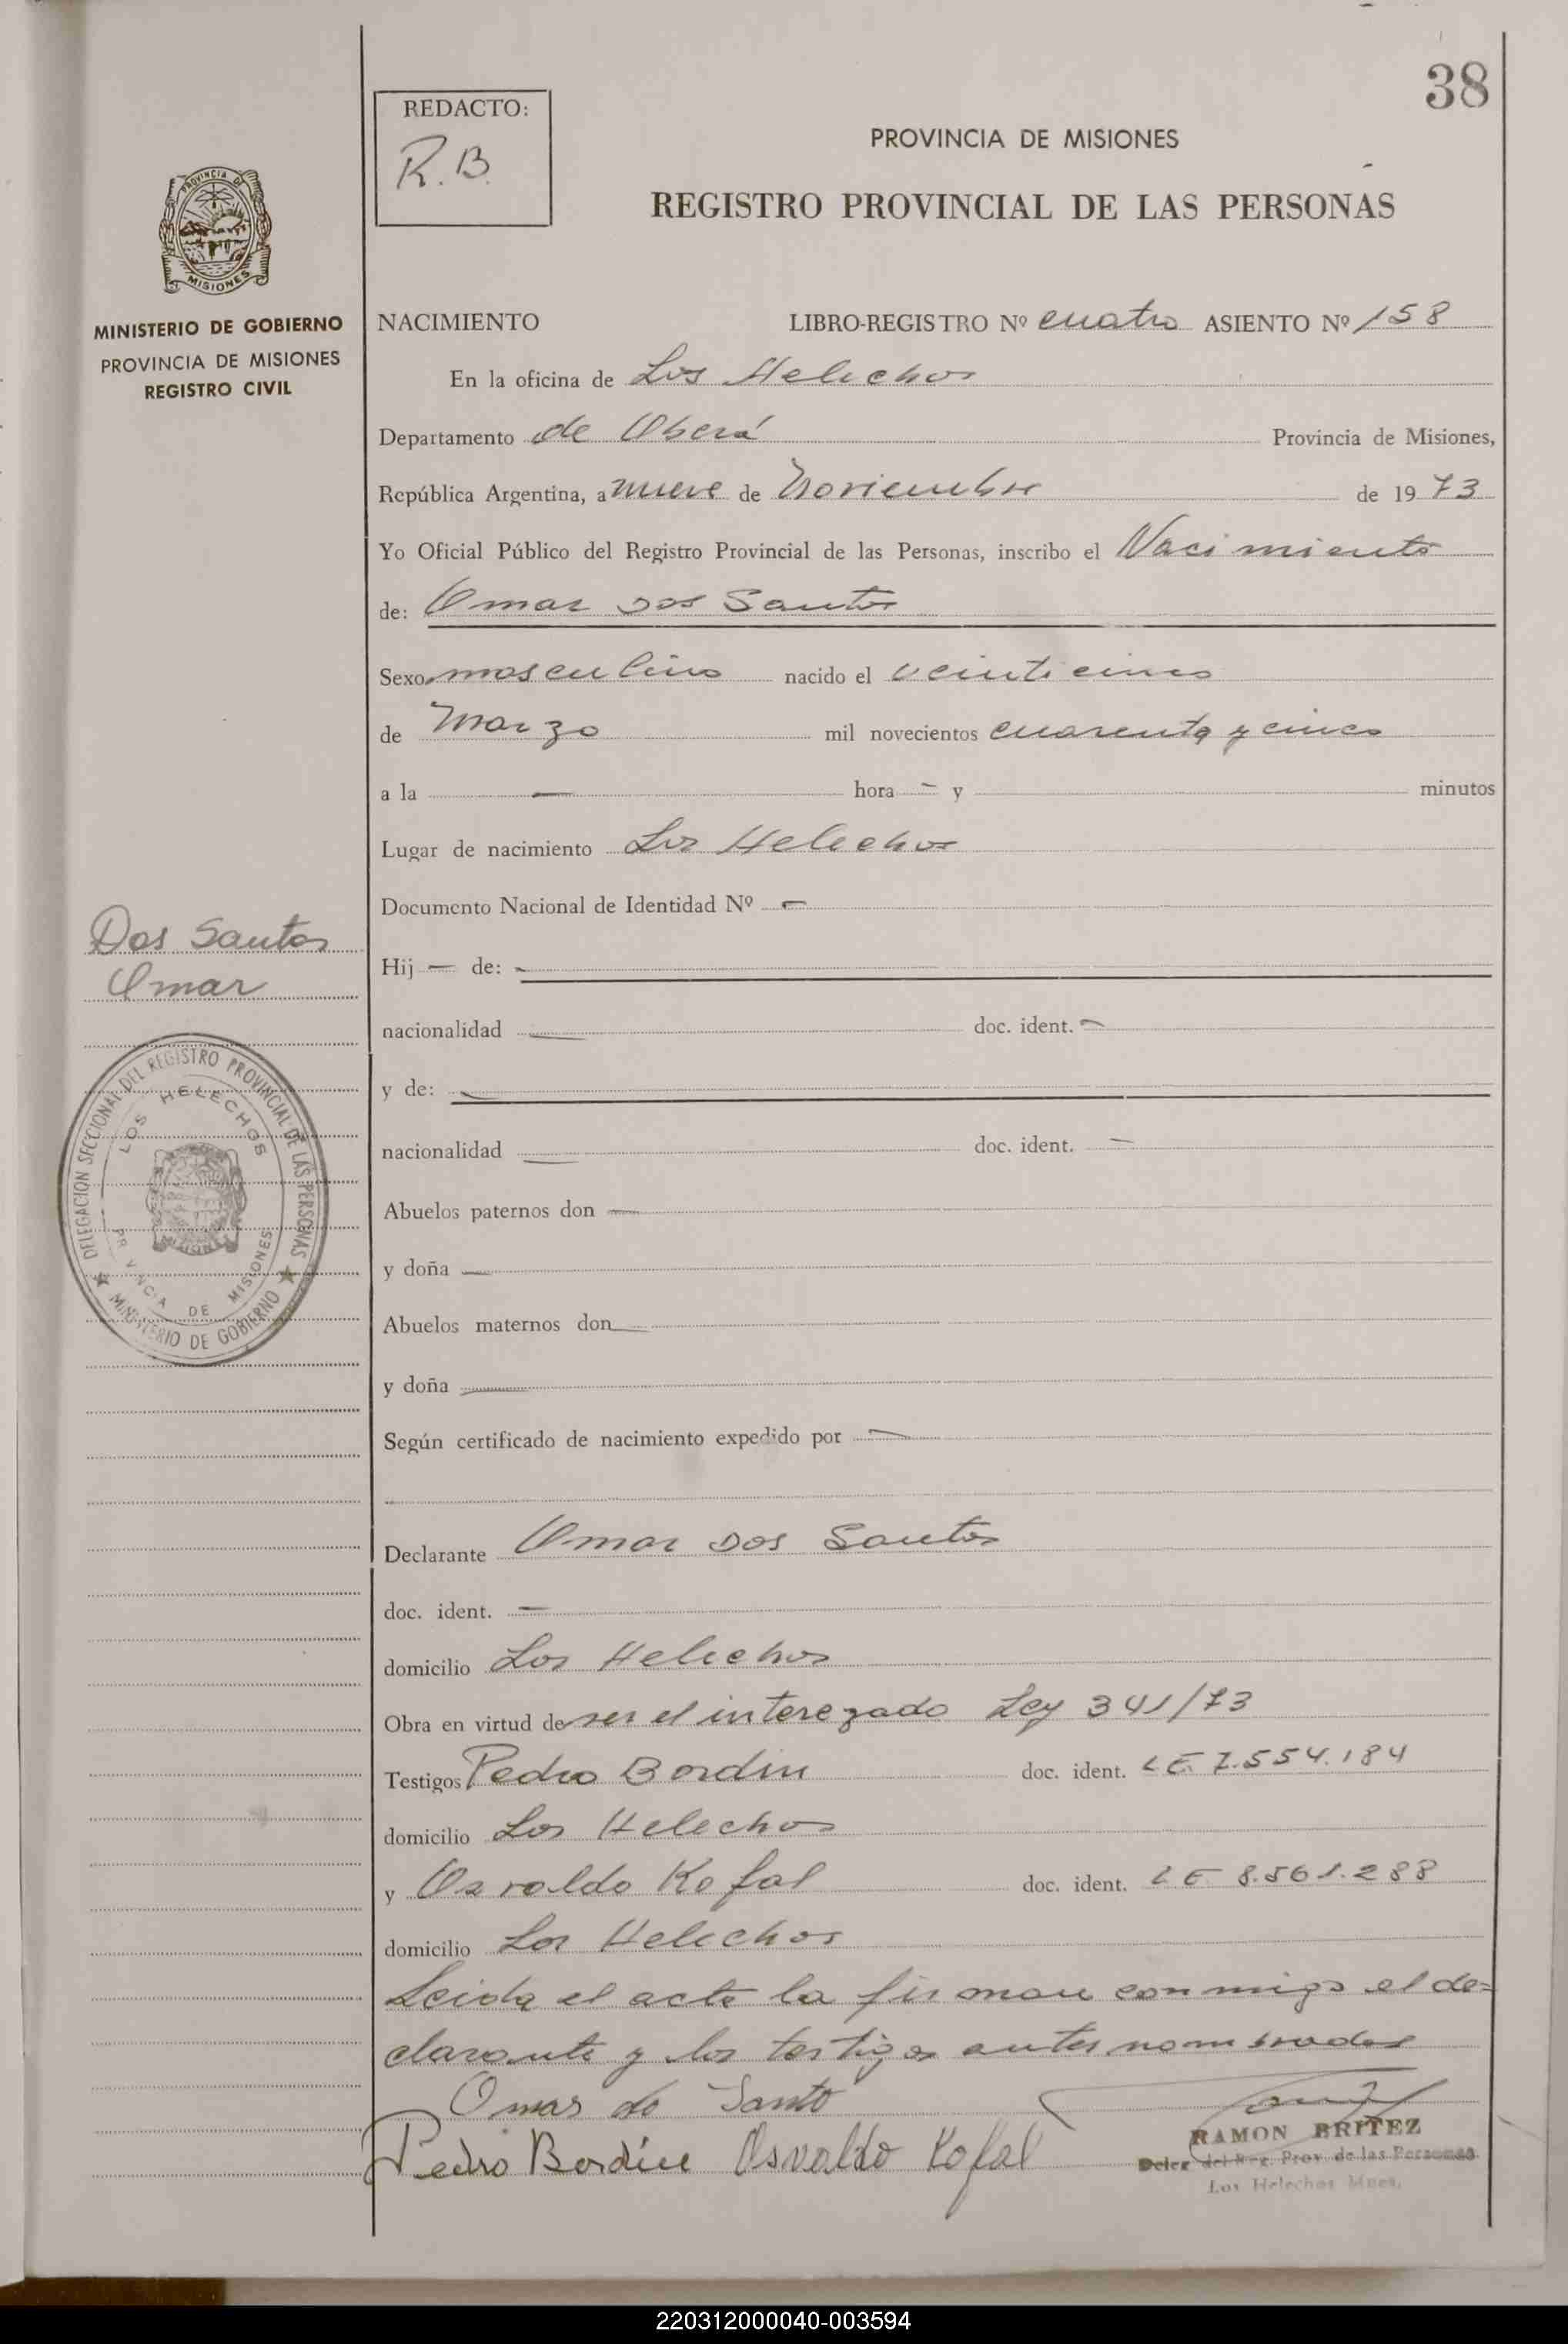 38
REDACTO:
R.B.
PROVINCIA DE MISIONES
REGISTRO PROVINCIAL DE LAS PERSONAS
PROVINCIA DE
MISIONES
MINISTERIO DE GOBIERNO
PROVINCIA DE MISIONES
REGISTRO CIVIL
NACIMIENTO LIBRO-REGISTRO Nº cuatro ASIENTO Nº 158
En la oficina de Los Helechos
Departamento de Oberá Provincia de Misiones,
República Argentina, a nueve de Noviembre de 1973
Yo Oficial Público del Registro Provincial de las Personas, inscribo el Nacimiento
de: Omar Dos Santos
Sexo masculino nacido el veinticinco
de Marzo mil novecientos cuarenta y cinco
a la — hora — y minutos
Lugar de nacimiento Los Helechos
Documento Nacional de Identidad Nº —
Dos Santos
Omar
Hij — de: —
nacionalidad — doc. ident. —
y de: —
nacionalidad — doc. ident. —
DELEGACION SECCIONAL DEL REGISTRO PROVINCIAL DE LAS PERSONAS
LOS HELECHOS
PR VINCIA DE MISIONES
MINISTERIO DE GOBIERNO
Abuelos paternos don —
y doña —
Abuelos maternos don —
y doña —
Según certificado de nacimiento expedido por —
Declarante Omar Dos Santos
doc. ident. —
domicilio Los Helechos
Obra en virtud de ser el interezado Ley 341/73
Testigos Pedro Bordin doc. ident. LE 7.554.184
domicilio Los Helechos
y Osvaldo Kofal doc. ident. LE 8.561.288
domicilio Los Helechos
Leida el acta la firman conmigo el de=
clarante y los testigos antes nombrados
Omar do Santo
Pedro Bordin Osvaldo Kofal
RAMON BRITEZ
Deleg del Reg. Prov de las Personas
Los Helechos Mnes.
220312000040-003594